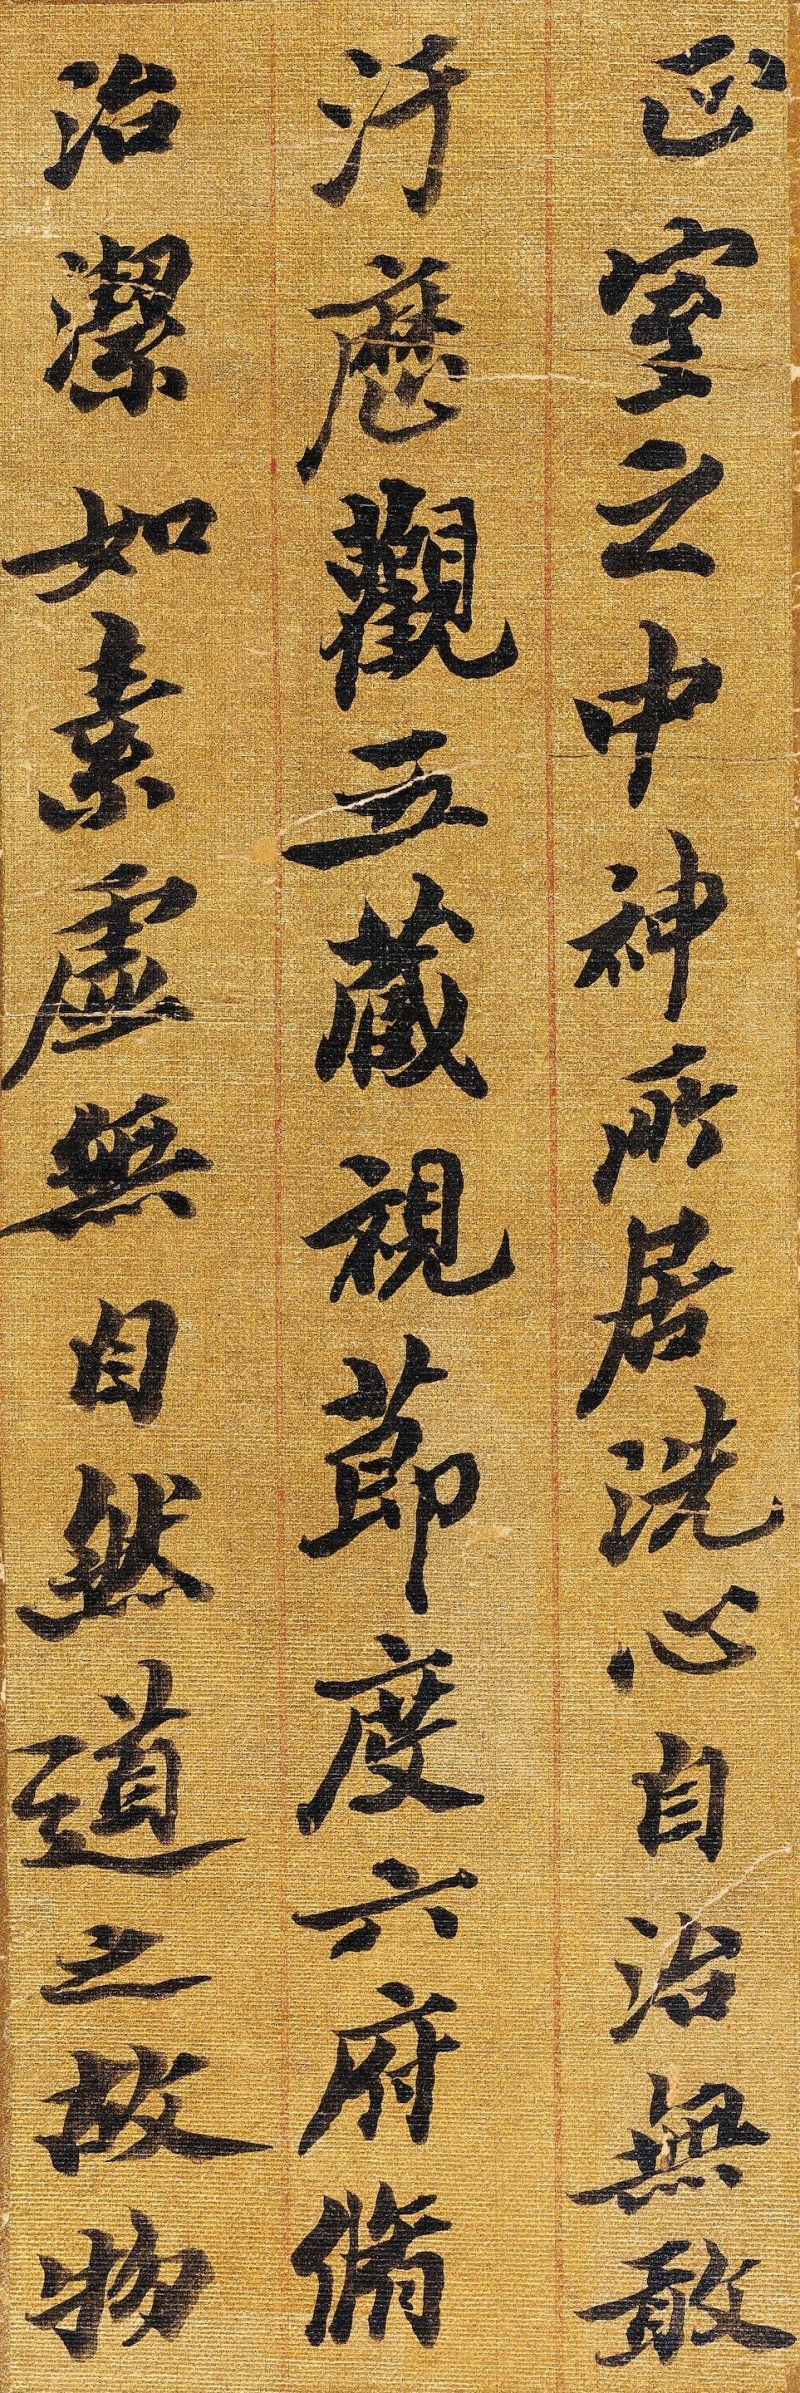 正室之中神所居洗心自治無敢
汙歷觀五藏視節度六府脩
治潔如素虛無自然道之故物